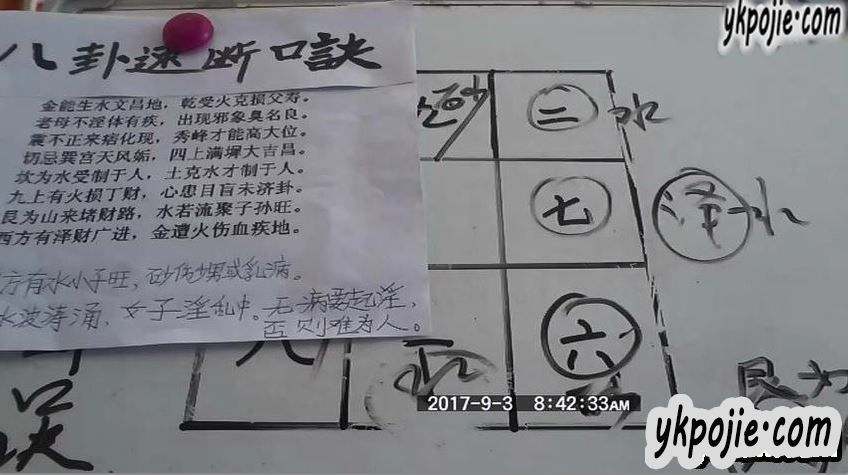 ykpojie.com
八卦速断口訣
金能生水文昌地，乾受火克损父寿。
老母不淫体有疾，出现邪象臭名良。
震不正来痞化现，秀峰才能高大位。
切忌巽宫天风姤，四上满墀大吉昌。
坎为水受制于人，土克水才制于人。
九上有火损丁财，心患目盲未济卦。
艮为山来堵财路，水若流聚子孙旺。
西方有泽财广进，金遭火伤血疾地。
方有水小子旺、砂伤甥或乳病。
水波涛涌、女子淫乱中。无病要起淫，
否则难为人。
二 水
七 泽 水
六
艮
口
诀
2017-9-3 8:42:33AM
ykpojie.com